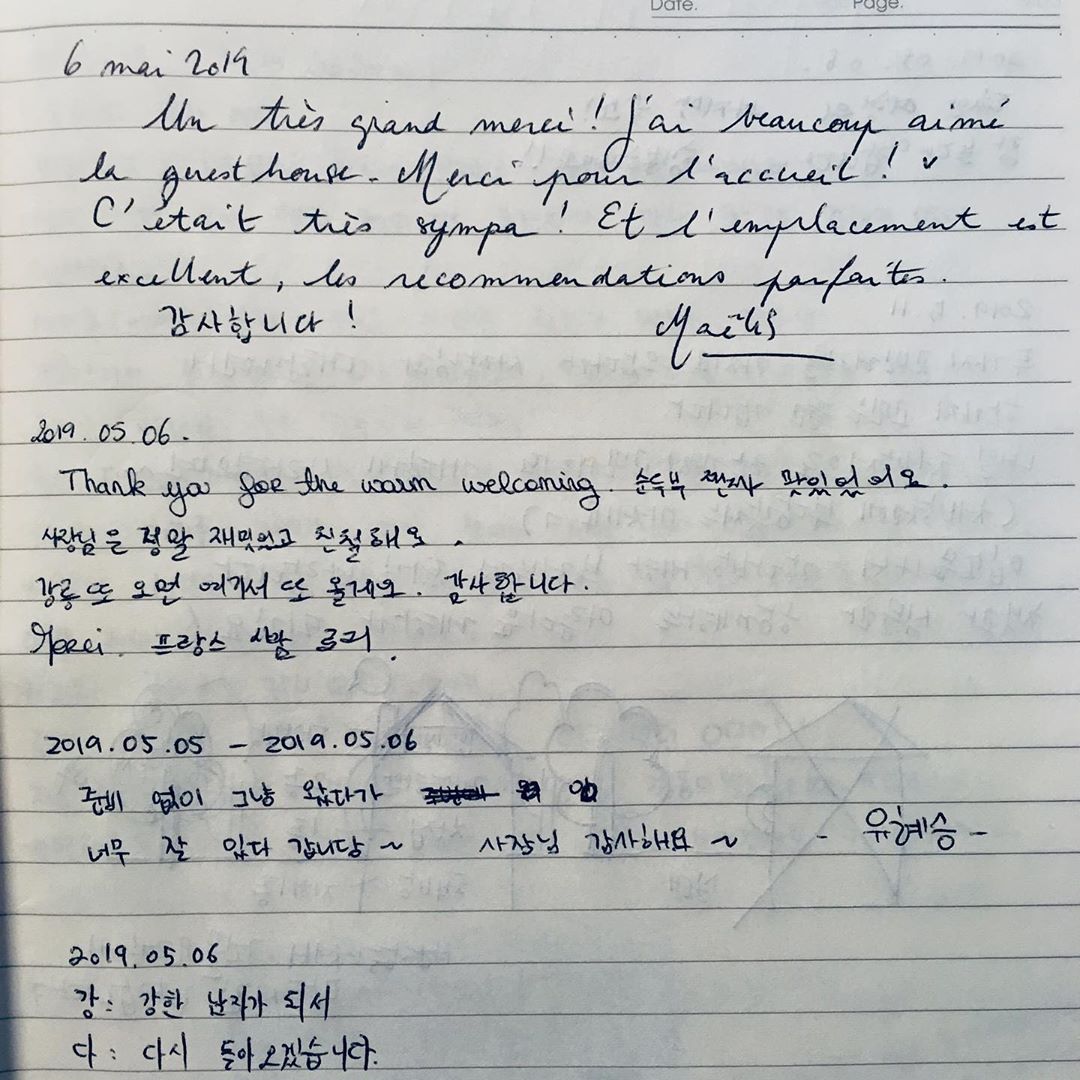 Date.
Page.
6 mai 2019
Un très grand merci ! J'ai beaucoup aimé
la guest house. Merci pour l'accueil !
C'était très sympa ! Et l'emplacement est
excellent, les recommendations parfaites.
감사합니다 !
Maëlis
2019. 05. 06.
Thank you for the warm welcoming. 순두부 짠짜 맛있었어요.
사장님은 정말 재밌었고 친절해요.
강릉 또 오면 여기서 또 올게요. 감사합니다.
Merci. 프랑스 사람 로리.
2019.05.05 - 2019.05.06
준비 없이 그냥 왔다가
너무 잘 있다 갑니당~ 사장님 감사해요~ - 유혜승 -
2019.05.06
강: 강한 남자가 되서
다: 다시 돌아오겠습니다.